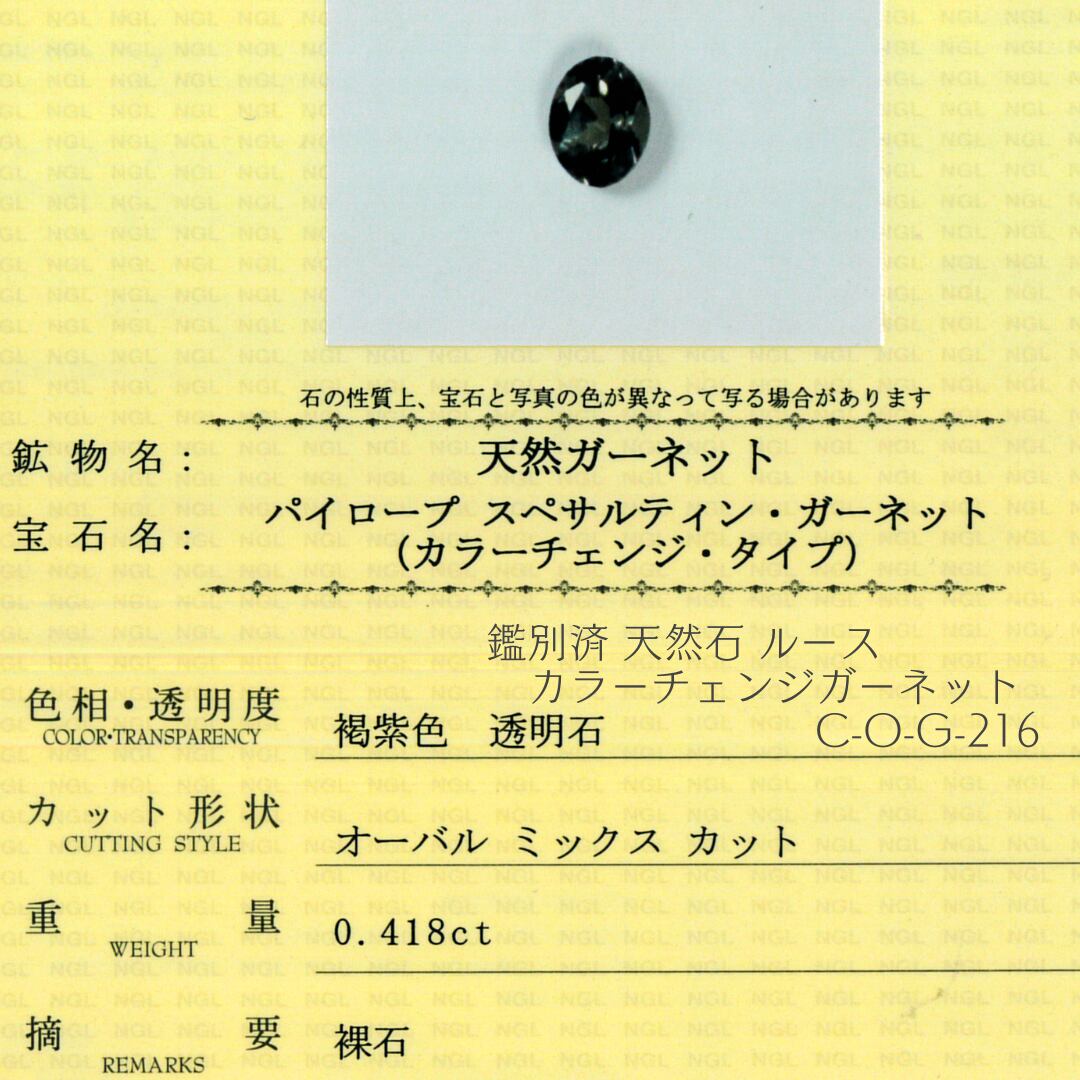 石の性質上、宝石と写真の色が異なって写る場合があります
鉱物名: 天然ガーネット
宝石名: パイロープ スペサルティン・ガーネット
(カラーチェンジ・タイプ)
鑑別済 天然石 ルース
カラーチェンジガーネット
C-O-G-216
色相・透明度 褐紫色 透明石
COLOR•TRANSPARENCY
カット形状 オーバル ミックス カット
CUTTING STYLE
重量 0.418ct
WEIGHT
摘要 裸石
REMARKS